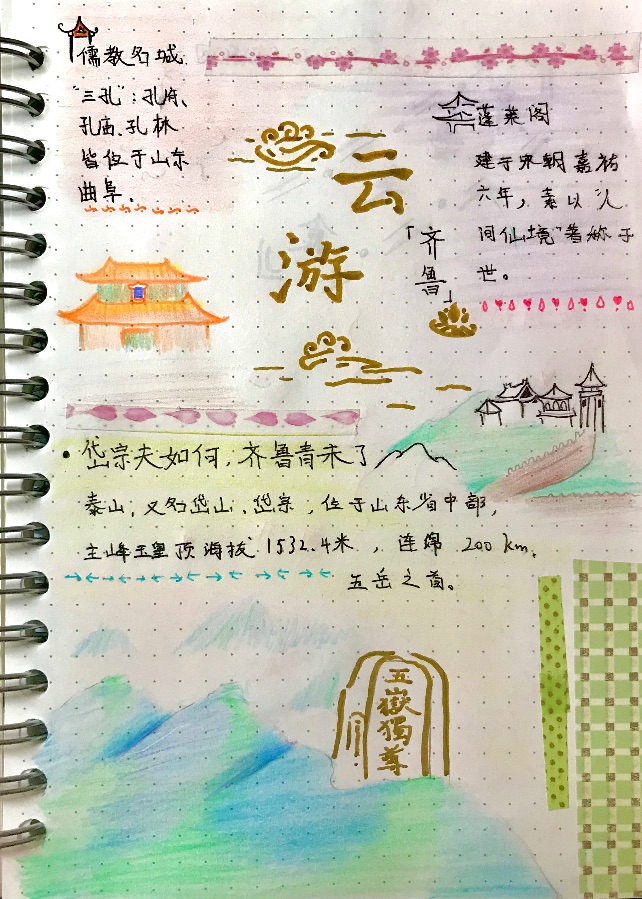 儒教名城
"三孔"：孔府、
孔庙、孔林
皆位于山东
曲阜。
云
游
「齐
鲁」
蓬莱阁
建于宋朝嘉祐
六年，素以"人
间仙境"著称于
世。
岱宗夫如何，齐鲁青未了
泰山，又名岱山、岱宗，位于山东省中部，
主峰玉皇顶海拔1532.4米，连绵200km，
五岳之首。
五嶽獨尊